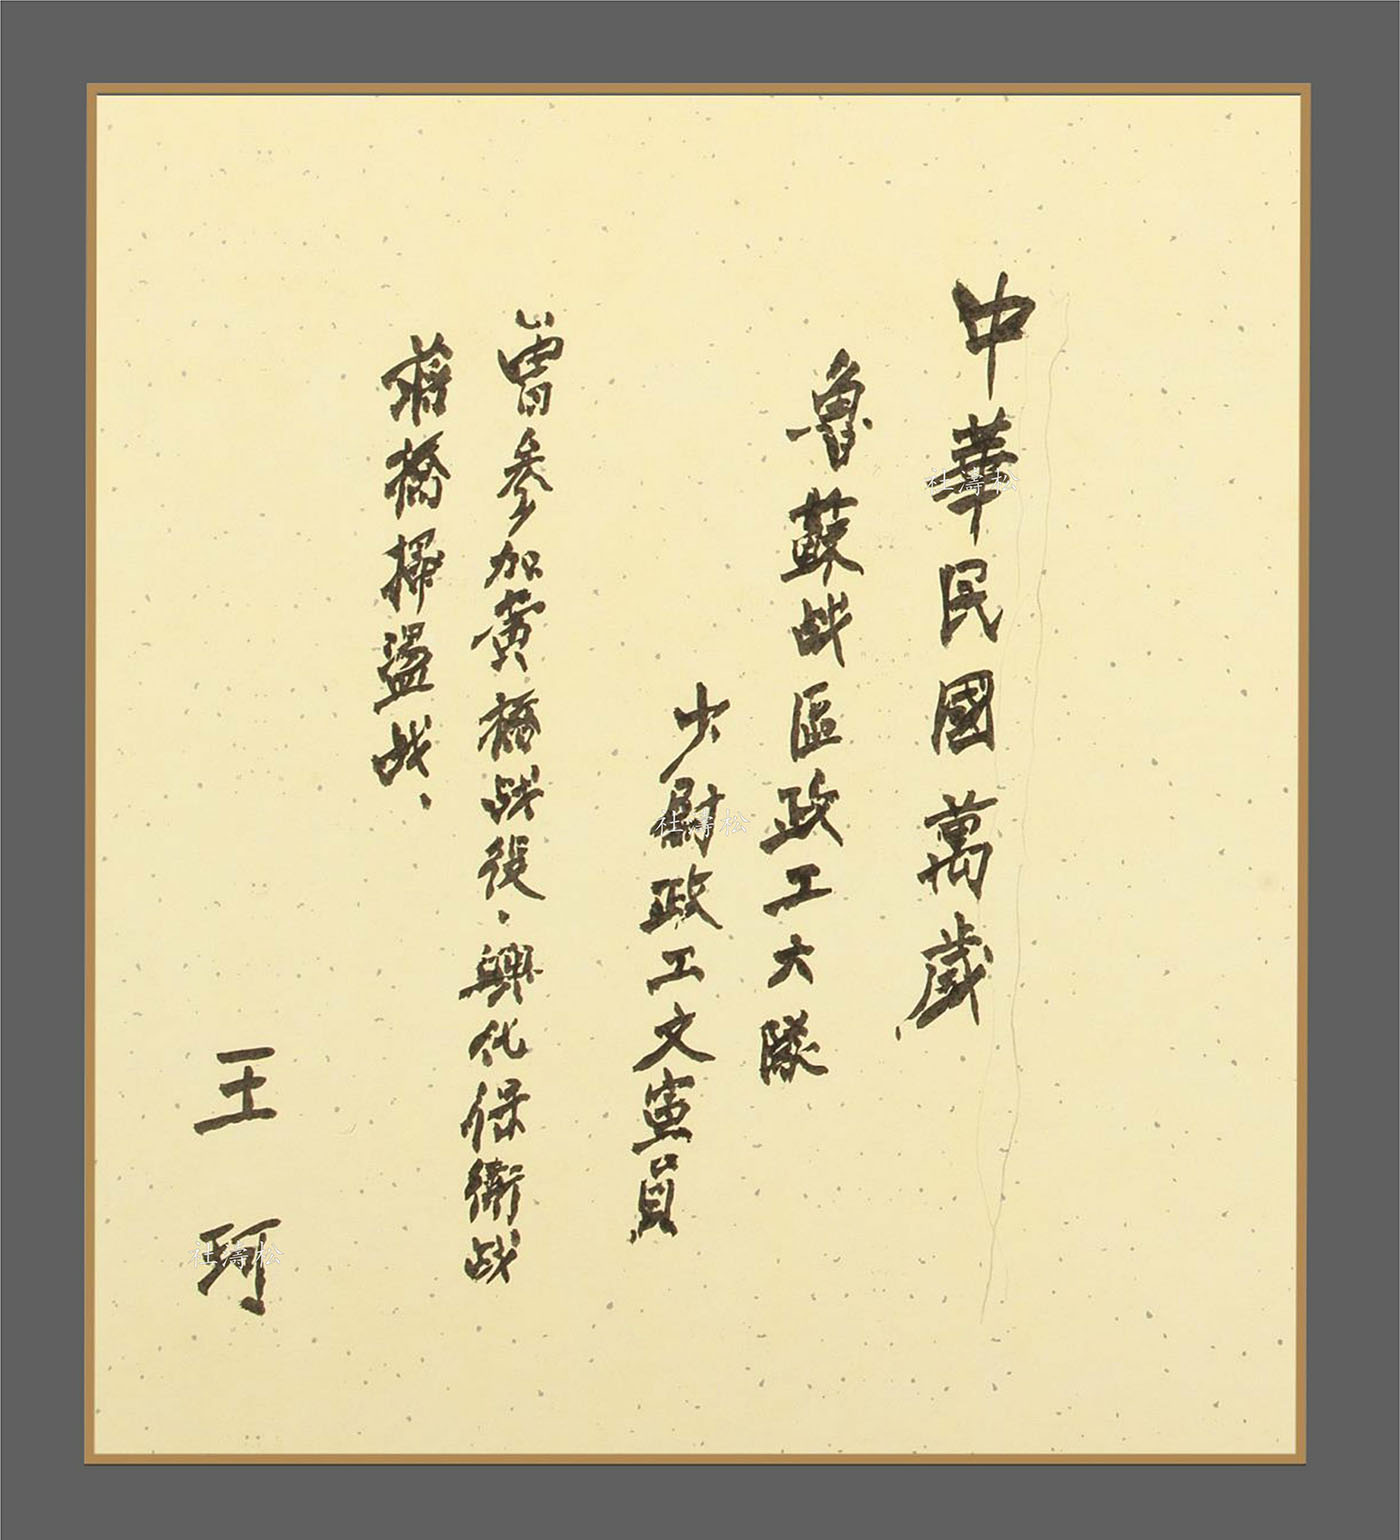 中華民國萬歲
魯蘇战區政工大隊
少尉政工文宣員
曾參加黄橋战役·興化保衛战
蒋橋掃盪战、
王珂
杜濤松
杜濤松
杜濤松